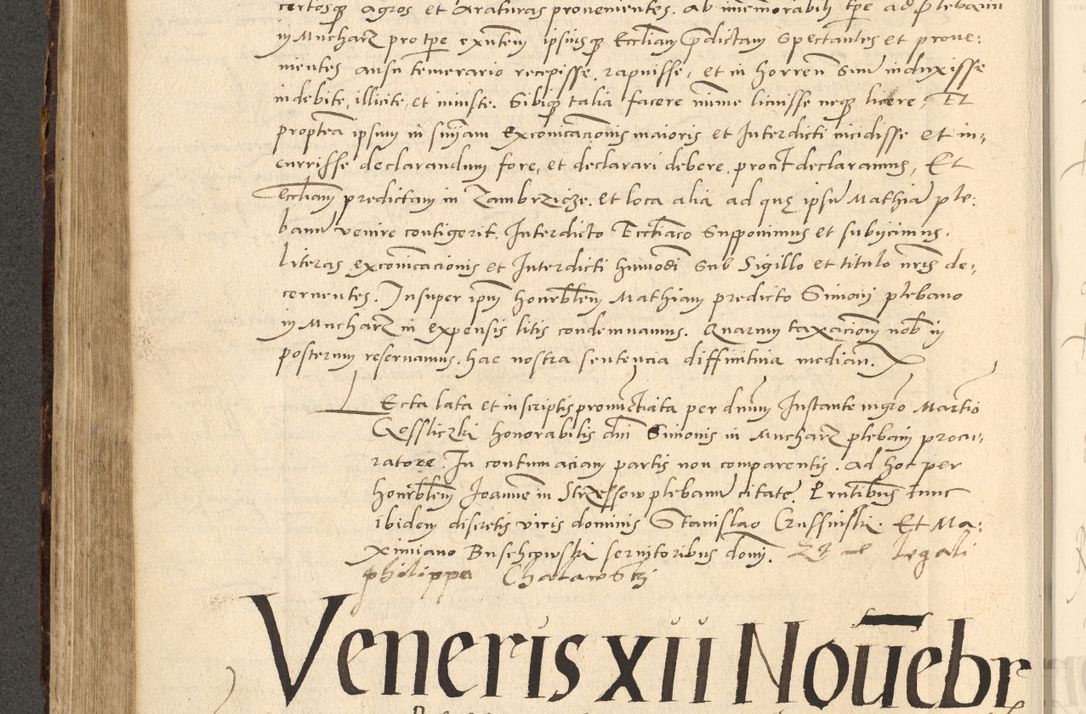 certosq̃ agros et araturas provenientes. ab immemorabili tpe ad plebanū
in Mucharz pro tpe exñtem ipsiusq̃ Eccłiam p̃dictam Spectantes et prove-
nientes ausu temerario recepisse, rapuisse, et in horreū Suū induxisse
indebite, illicite, et iniuste. Sibiq̃ talia facere mĩme licuisse neq̃ licere, Et
proptea ipsum in sñiam Exconicacionis maioris et Interdicti incidisse et in-
currisse declarandum fore, et declarari debere, prout declaramus, Et
Eccłiam predictam in Zambrziche. et loca alia ad quę ipsū Mathiā ple-
banū venire contigerit. Interdicto Eccłiaco Supponimus et subijcimus.
Literas exconicacionis et Interdicti hmõdi Sub Sigillo et titulo nr̃is de-
cernentes. Insuper ipm̃ honrbłem Mathiam predicto Simoni plebano
in Mucharz in expensis litis condemnamus. Quarum taxacionem nob̃ in
posterum reservamus. hac nostra sentencia diffinitiva median̄.
Lecta lata et in scriptis pronunctiata per dnūm Instante mgr̃o Martino
Gosliczki honorabilis dni Simonis in Mucharz plebani procu-
ratore. In contumaciam partis non comparentis. ad hoc per
honrbłem Joannem in Strzessow plebanū citatę. Pñtibus tunc
ibidem discretis viris dominis Stanislao Crassinski. Et Ma-
ximiano Buschcowski servitoribus domi. Et me legali
philippo
Veneris xii Novēbr